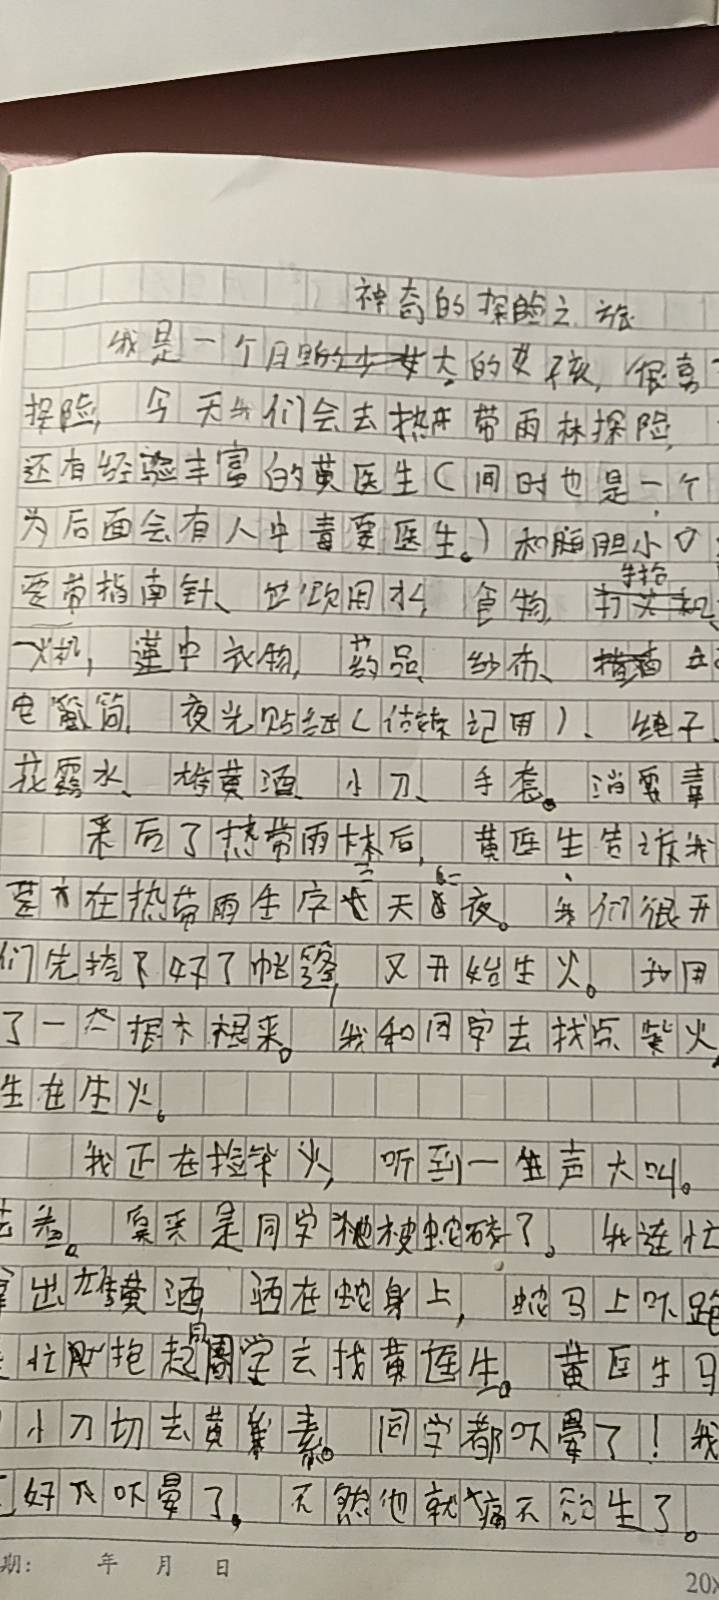 神奇的探险之旅
我是一个月胆大的女孩，很喜
探险，今天我们会去热带雨林探险，
还有经验丰富的黄医生（同时也是一个
为后面会有人中毒要医生。）和胆小
要带指南针、饮用水，食物，
火机，衣物，药品、纱布、
电筒，夜光贴纸（做标记用）、绳子、
花露水、雄黄酒、小刀、手套。消毒
来后了热带雨林后，黄医生告诉我
要在热带雨生存三天二夜。我们很开
们先搭好了帐篷，又开始生火。我用
了一些根木根来。我和同学去找点柴火，
生在生火。
我正在捡柴火，听到一声大叫。
去看。原来是同学被蛇咬了。我连忙
拿出雄黄酒，洒在蛇身上，蛇马上吓跑
忙抱起同学去找黄医生。黄医生马
小刀切去黄毒素。同学都吓晕了！我
好吓晕了，不然他就痛不欲生了。
期： 年 月 日
20×